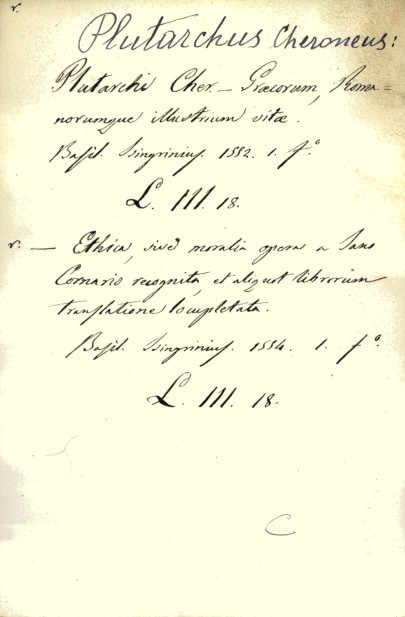 r.
Plutarchus Cheroneus:
Plutarchi Cher_ Græcorum, Roma=
norumque illustrium vitæ.
Basil. Isingrinius. 1552. 1. fº.
L. III. 18.
r. — Ethica, sive moralia opera a Jano
Cornario recognita, et aliquot librorum
translatione locupletata.
Basil. Isingrinius. 1554. 1. fº.
L. III. 18.
C